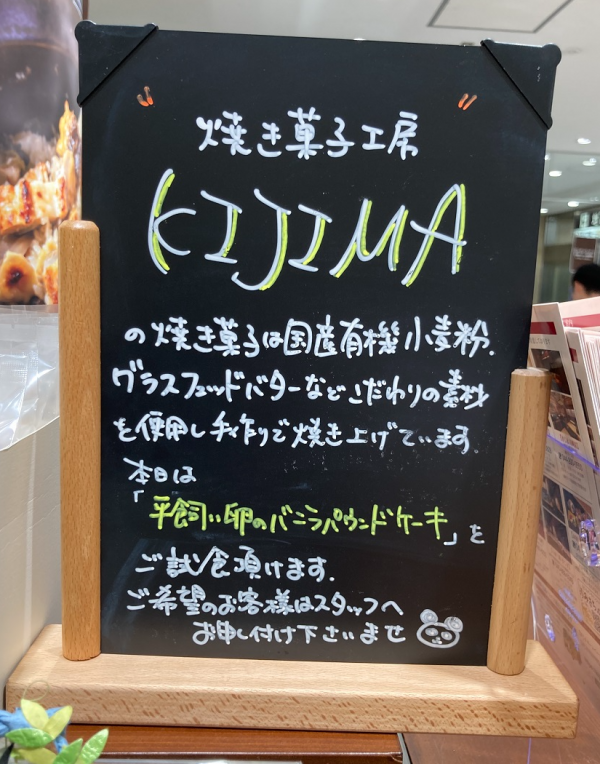 焼き菓子工房
KIJIMA
の焼き菓子は国産有機小麦粉.
グラスフェッドバターなどこだわりの素材
を使用し手作りで焼き上げています.
本日は
「平飼い卵のバニラパウンドケーキ」を
ご試食頂けます.
ご希望のお客様はスタッフへ
お申し付け下さいませ